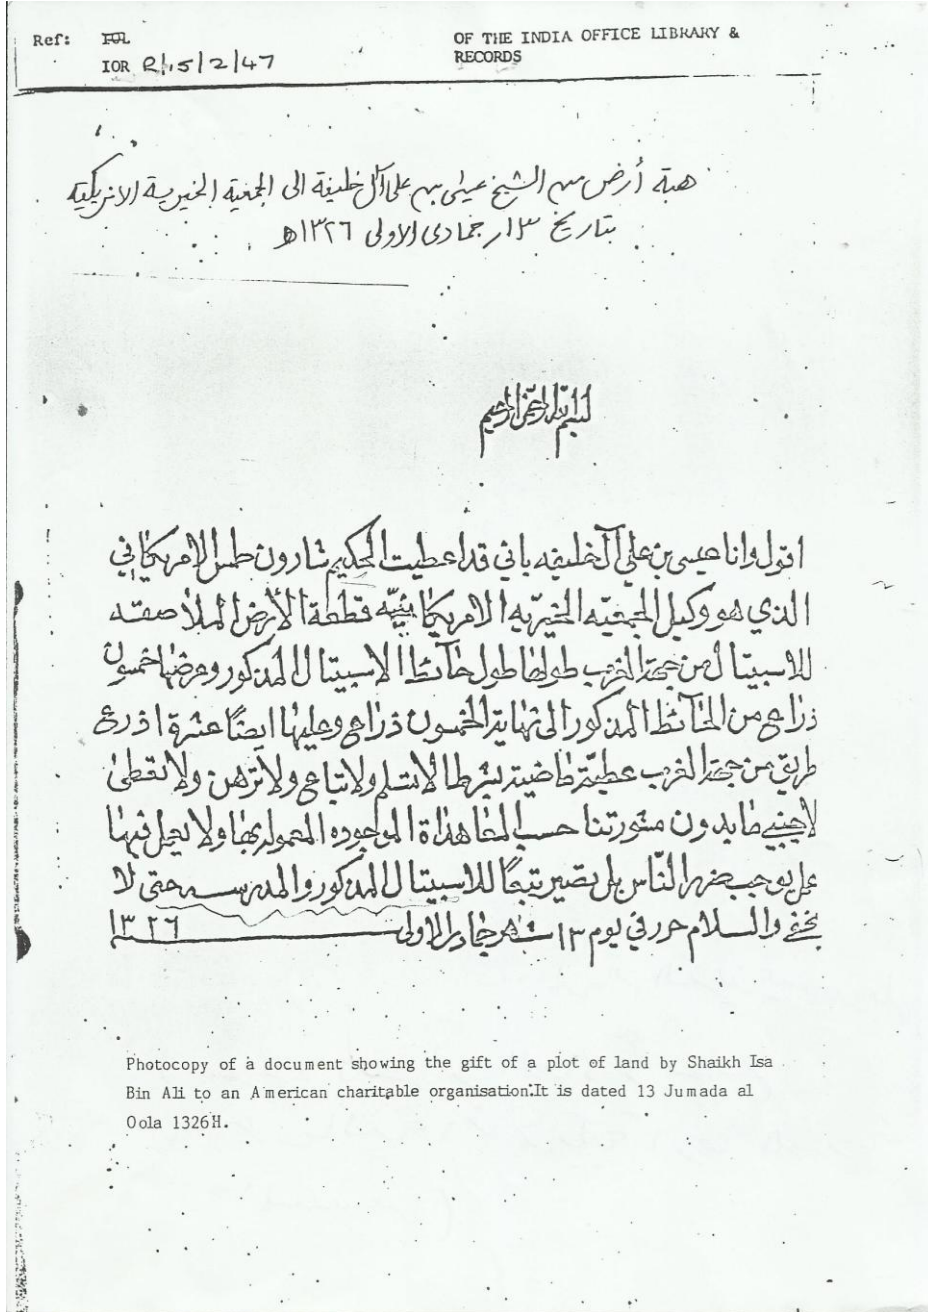 Ref: FOL
OF THE INDIA OFFICE LIBRARY &
IOR R/15/2/47
RECORDS
هبة أرض من الشيخ عيسى بن علي آل خليفة الى الجمعية الخيرية الامريكية
بتاريخ ١٣ر جمادى الاولى ١٣٢٦ه
بسم الله الرحمن الرحيم
اقول وانا عيسى بن علي آل خليفه باني قد اعطيت الحكيم شارون طمس الامريكاني
الذي هو وكيل الجمعيه الخيريه الامريكانيه قطعة الأرض الملاصقه
للاسبيتال من جهة الغرب طولها طول حائط الاسبيتال المذكور وعرضها خمسون
ذراع من الحائط المذكور الى نهاية الخمسون ذراع وعليها ايضًا عشرة اذرع
طريق من جهة الغرب عطيّة ماضية بشرط الا تسلم ولا تباع ولا ترهن ولا تعطى
لاجنبي ما بدون مشورتنا حسب المعاهداة الموجوده المعمول بها ولا يعمل فيها
عمل يوجب ضرر النّاس بل يصير تبعًا للاسبيتال المذكور والمدرسه حتى لا
يخفى والسلام حرر في يوم ١٣ شهر جمادى الاولى ١٣٢٦
Photocopy of a document showing the gift of a plot of land by Shaikh Isa
Bin Ali to an American charitable organisation.It is dated 13 Jumada al
Oola 1326H.